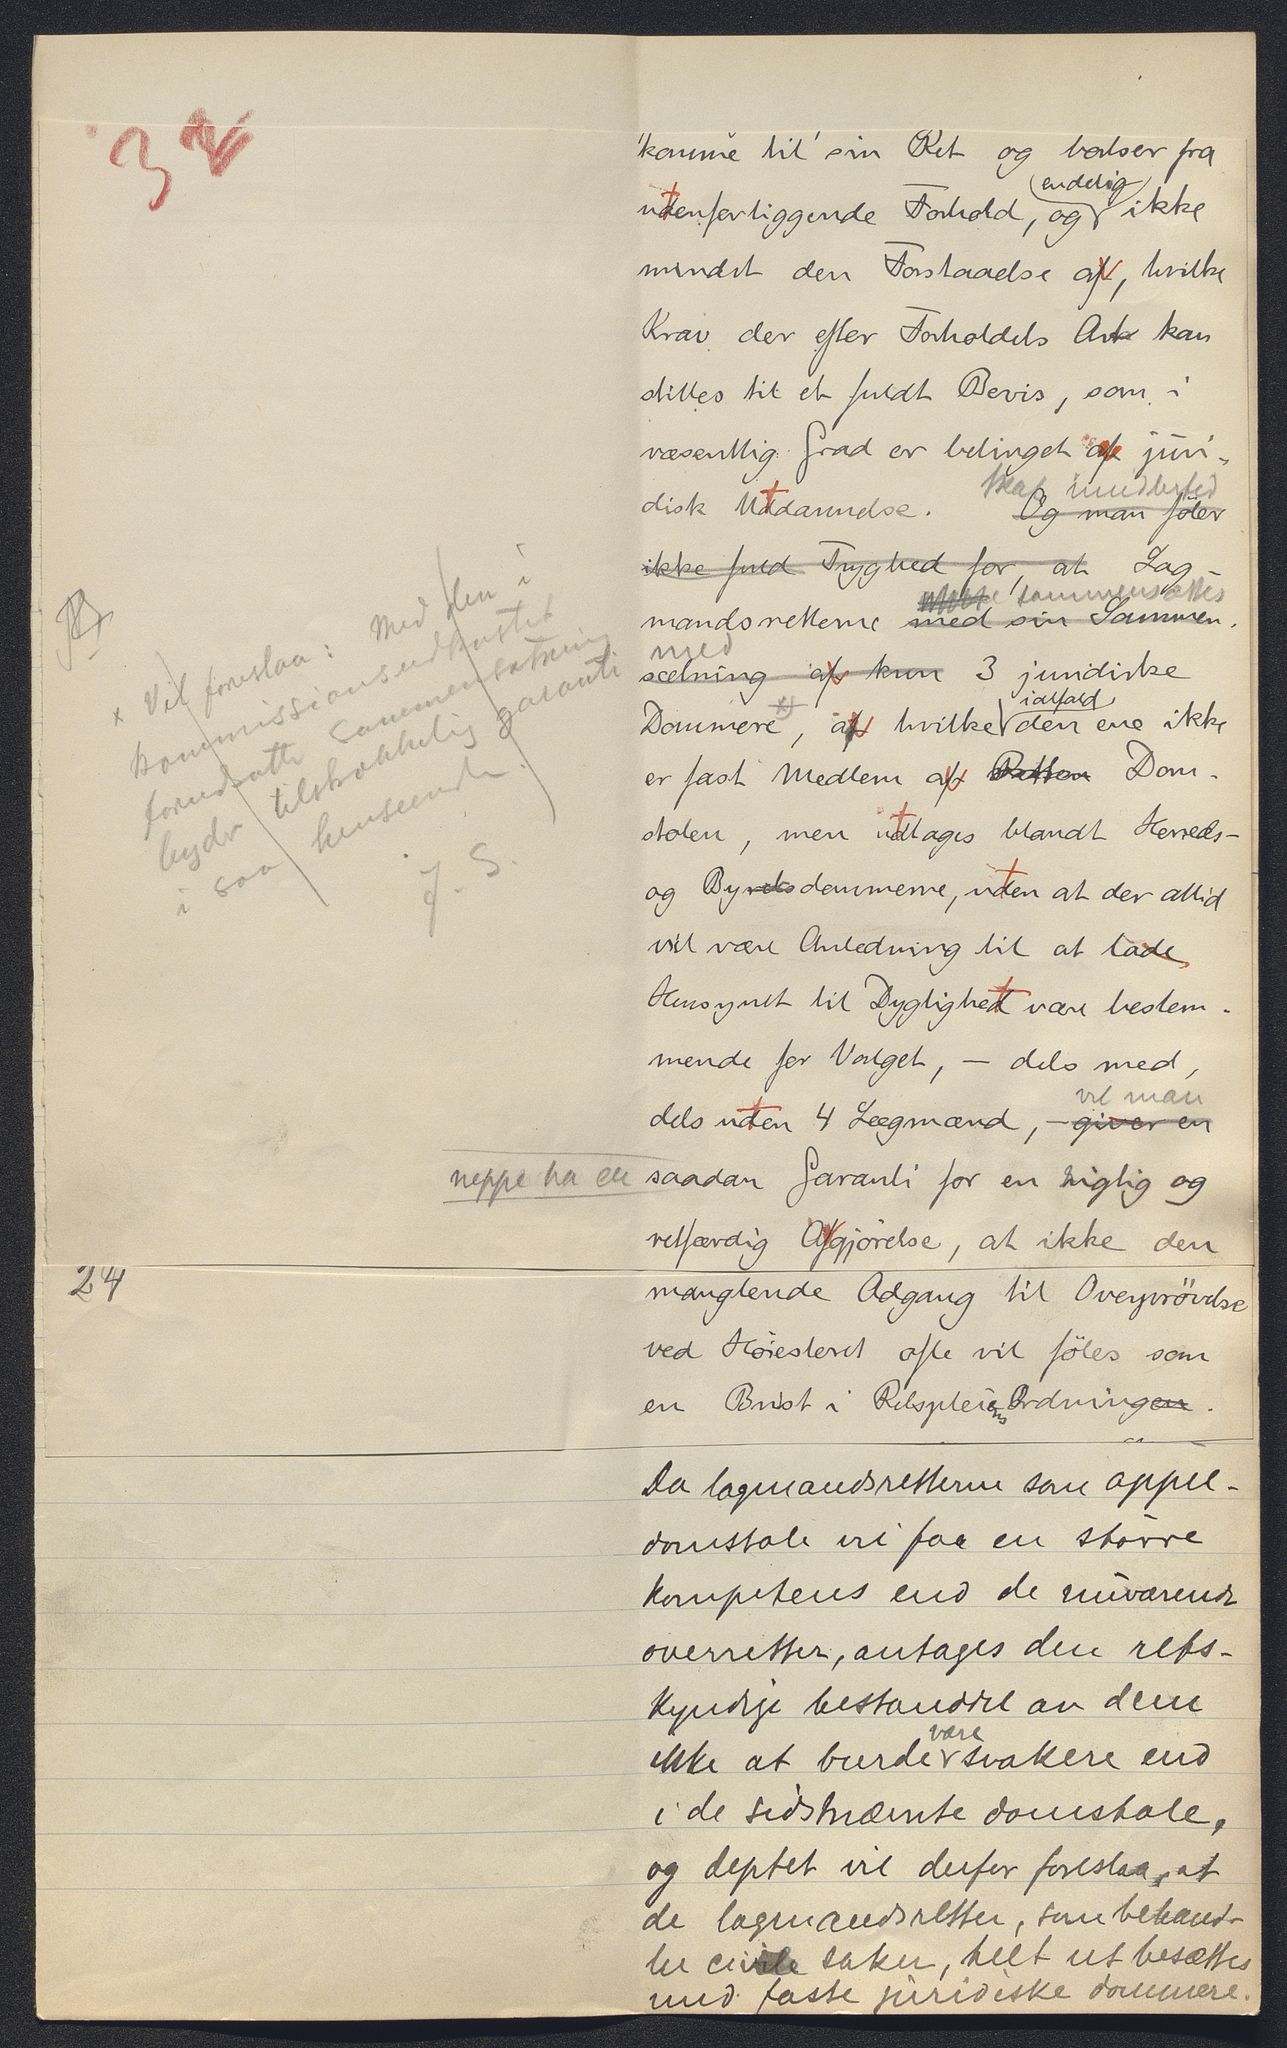 3
komme til sin Ret og løser fra
endelig
utenforliggende Forhold, og ikke
mindst den Forstaaelse av, hvilke
Krav der efter Forholdets Art kan
stilles til et fuldt Bevis, som i
væsentlig Grad er betinget av juri-
disk Utdannelse. Og man føler
skal imidlertid
ikke fuld Tryghed for, at Lag-
sammensættes
mandsretterne med sin Sammen-
med
sætning av kun 3 juridiske
ialfald
Dommere x), av hvilke den ene ikke
er fast Medlem av Retten Dom-
stolen, men uttages blandt Herreds-
og Byretsdommerne, uten at der altid
vil være Anledning til at lade
Hensynet til Dygtighet være bestem-
mende for Valget, — dels med,
vil man
dels uten 4 Lægmænd, — giver en
neppe ha en
saadan Garanti for en rigtig og
retfærdig Afgjørelse, at ikke den
24
manglende Adgang til Overprøvelse
ved Høiesteret ofte vil føles som
en Brist i Retspleiens Ordningen.
Da lagmandsretterne som appel-
domstole vil faa en større
kompetens end de nuværende
overretter, antages den rets-
kyndige bestanddel av dem
være
ikke at burde svakere end
i de sidstnævnte domstole,
og deptet vil derfor foreslaa, at
de lagmandsretter, som behand-
ler civile saker, helt ut besættes
med faste juridiske dommere.
x Vil foreslaa: Med den i
kommissionsudkastet
forudsatte sammensætning
byder tilstrækkelig garanti
i saa henseende.
J. S.